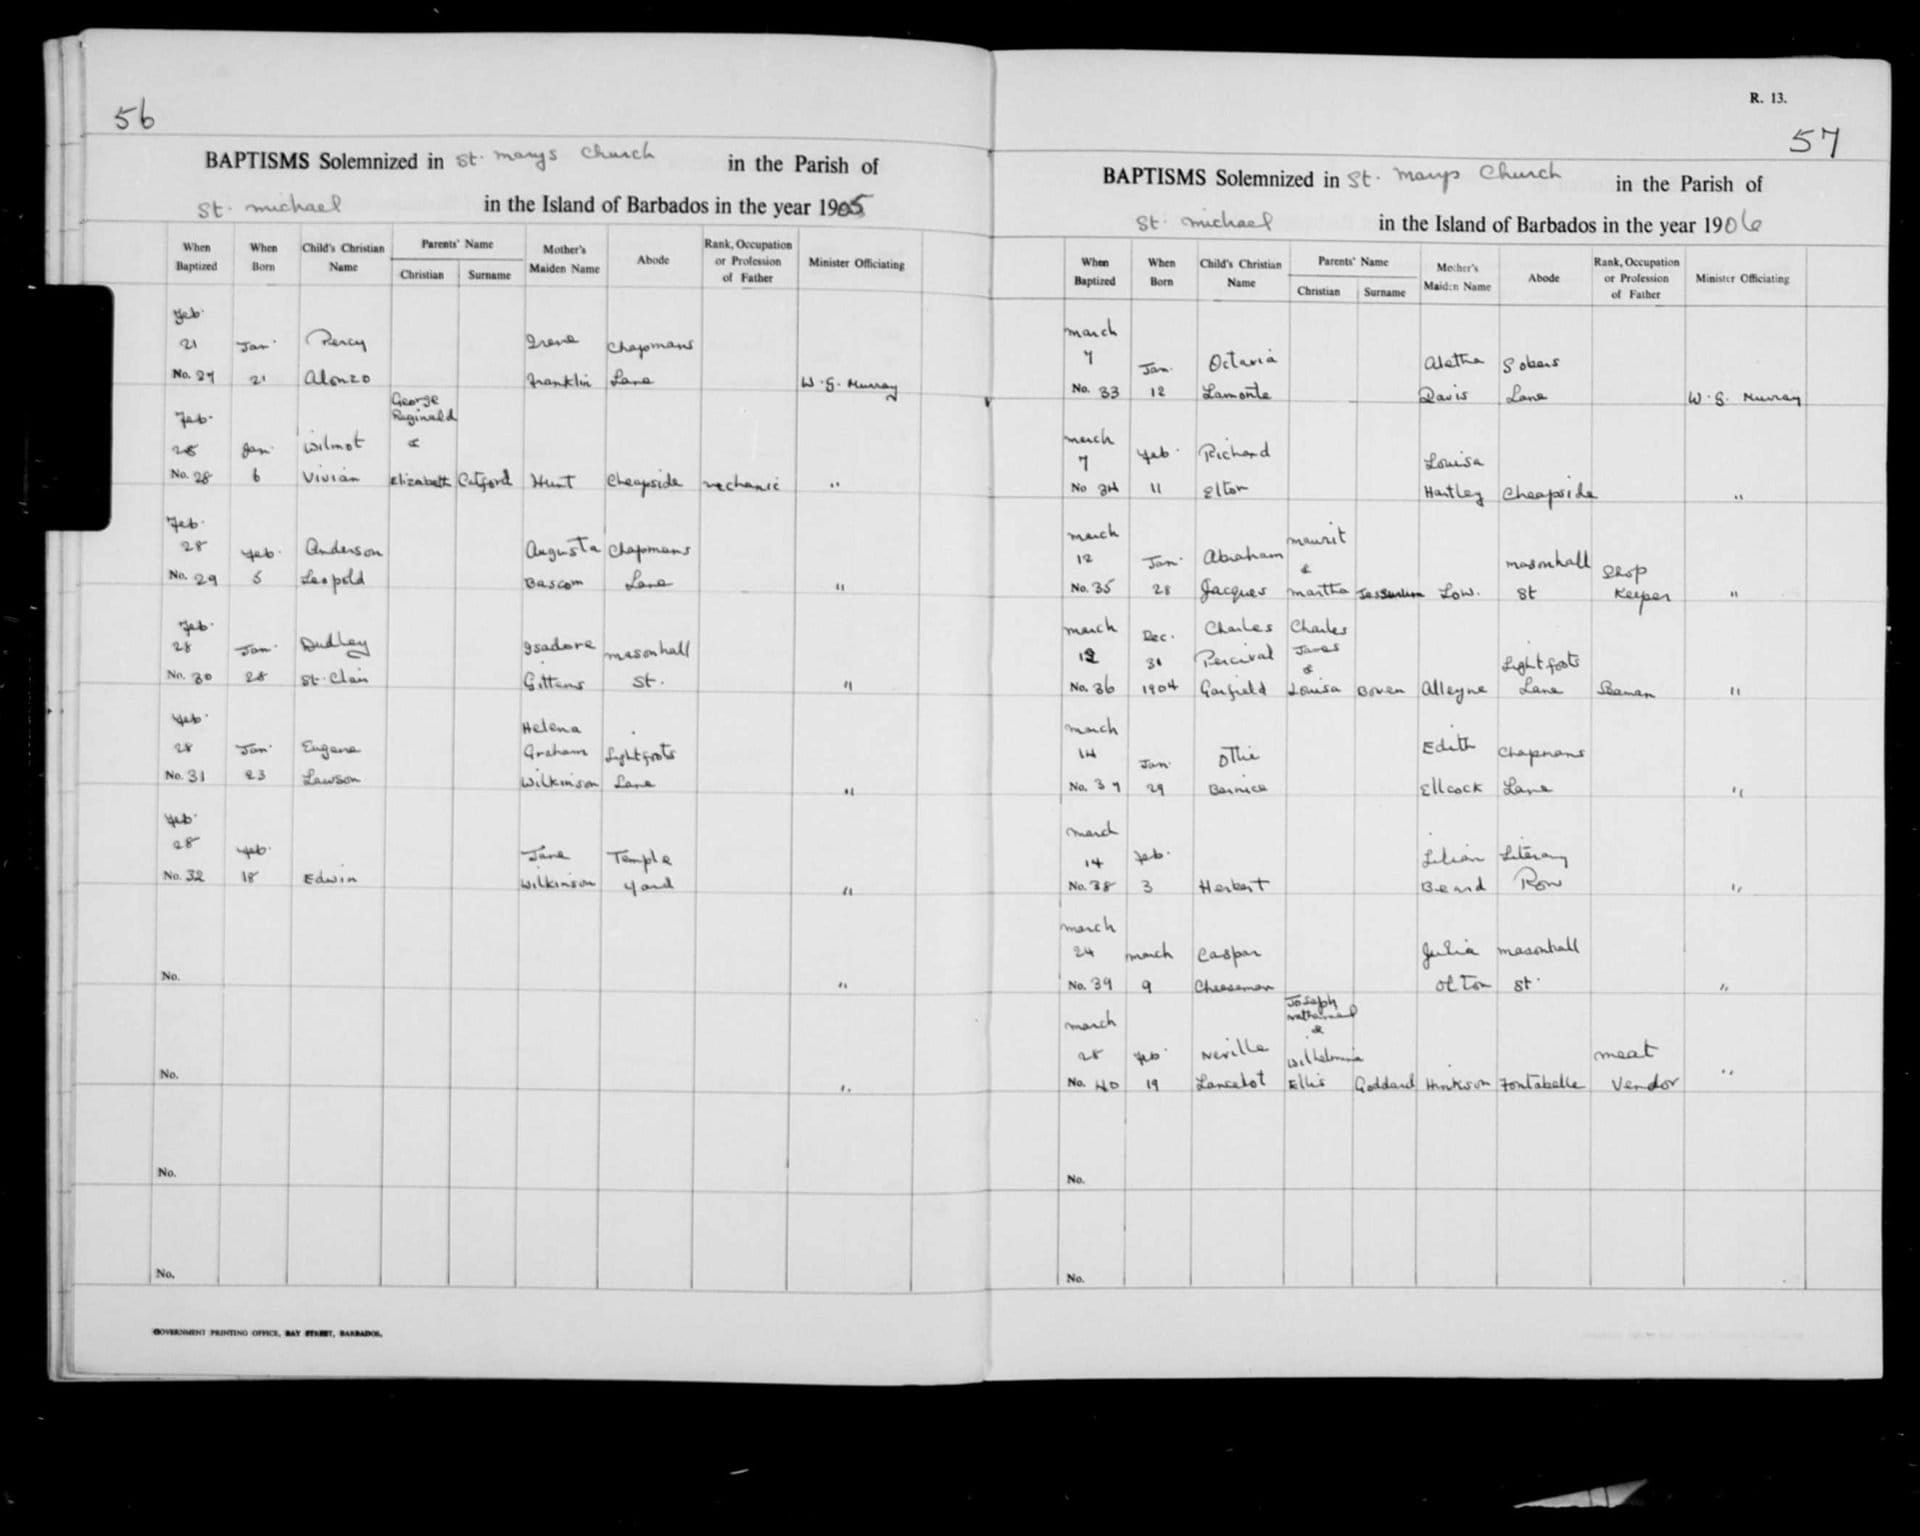 56
BAPTISMS Solemnized in St. Marys Church in the Parish of
St. Michael in the Island of Barbados in the year 1905
When Baptized When Born Child's Christian Name Parents' Name Christian Surname Mother's Maiden Name Abode Rank, Occupation or Profession of Father Minister Officiating
Feb.
21 Jan. Percy Irene Chapmans
No. 27 21 Alonzo Franklin Lane W. G. Murray
George
Feb. Reginald
28 Jan. Wilmot &
No. 28 6 Vivian Elizabeth Catford Hunt Cheapside Mechanic "
Feb.
28 Feb. Anderson Augusta Chapmans
No. 29 5 Leopold Bascom Lane "
Feb.
28 Jan. Dudley Isadore Masonhall
No. 30 28 St. Clair Gittens St. "
Feb. Helena
28 Jan. Eugene Graham Lightfoots
No. 31 23 Lawson Wilkinson Lane "
Feb.
28 Feb. Jane Temple
No. 32 18 Edwin Wilkinson Yard "
No. "
No. "
No.
No.
GOVERNMENT PRINTING OFFICE, BAY STREET, BARBADOS.
R. 13.
57
BAPTISMS Solemnized in St. Marys Church in the Parish of
St. Michael in the Island of Barbados in the year 1906
When Baptized When Born Child's Christian Name Parents' Name Christian Surname Mother's Maiden Name Abode Rank, Occupation or Profession of Father Minister Officiating
March
7 Jan. Octavia Aletha Sobers
No. 33 12 Lamonte Davis Lane W. G. Murray
March
7 Feb. Richard Louisa
No 34 11 Elton Hartley Cheapside "
March Maurit
12 Jan. Abraham & Masonhall Shop
No. 35 28 Jacques Martha Low. St Keeper "
March Dec. Charles Charles
12 31 Percival James & Lightfoots
No. 36 1904 Garfield Louisa Boven Alleyne Lane Seaman "
March
14 Jan. Ottie Edith Chapmans
No. 37 29 Bernice Ellcock Lane "
March
14 Feb. Lilian Literary
No. 38 3 Herbert Beard Row "
March
24 March Caspar Julia Masonhall
No. 39 9 Cheeseman Olton St. "
Joseph
March Nathaniel
28 Feb. Neville & Wilhelmina Meat
No. 40 19 Lancelot Ellis Goddard Hinkson Fontabelle Vendor "
No.
No.